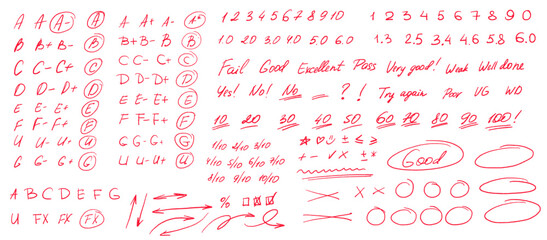 A A A- A
B B+ B- B
C C- C+ C
D D- D+ D
E E- E+ E
F F- F+ F
U U- U+ U
G G- G+ G
A B C D E F G
U FX FX FX
A A+ A- A+
B+ B- B
C C- C+ C
D D- D+ D
E E- E+ E
F F- F+ F
G G- G+ G
U U- U+ U
1 2 3 4 5 6 7 8 9 10
1.0 2.0 3.0 4.0 5.0 6.0
1 2 3 4 5 6 7 8 9 0
1.3 2.5 3.4 4.6 5.8 6.0
Fail Good Excellent Pass Very good! Weak Well done
Yes! No! No _ ? ! Try again Poor VG WD
10 20 30 40 50 60 70 80 90 100!
1/10 2/10 3/10
4/10 5/10 6/10
7/10 8/10
9/10 10/10
± ≤ ≥
+ - √ x ±
Good
%